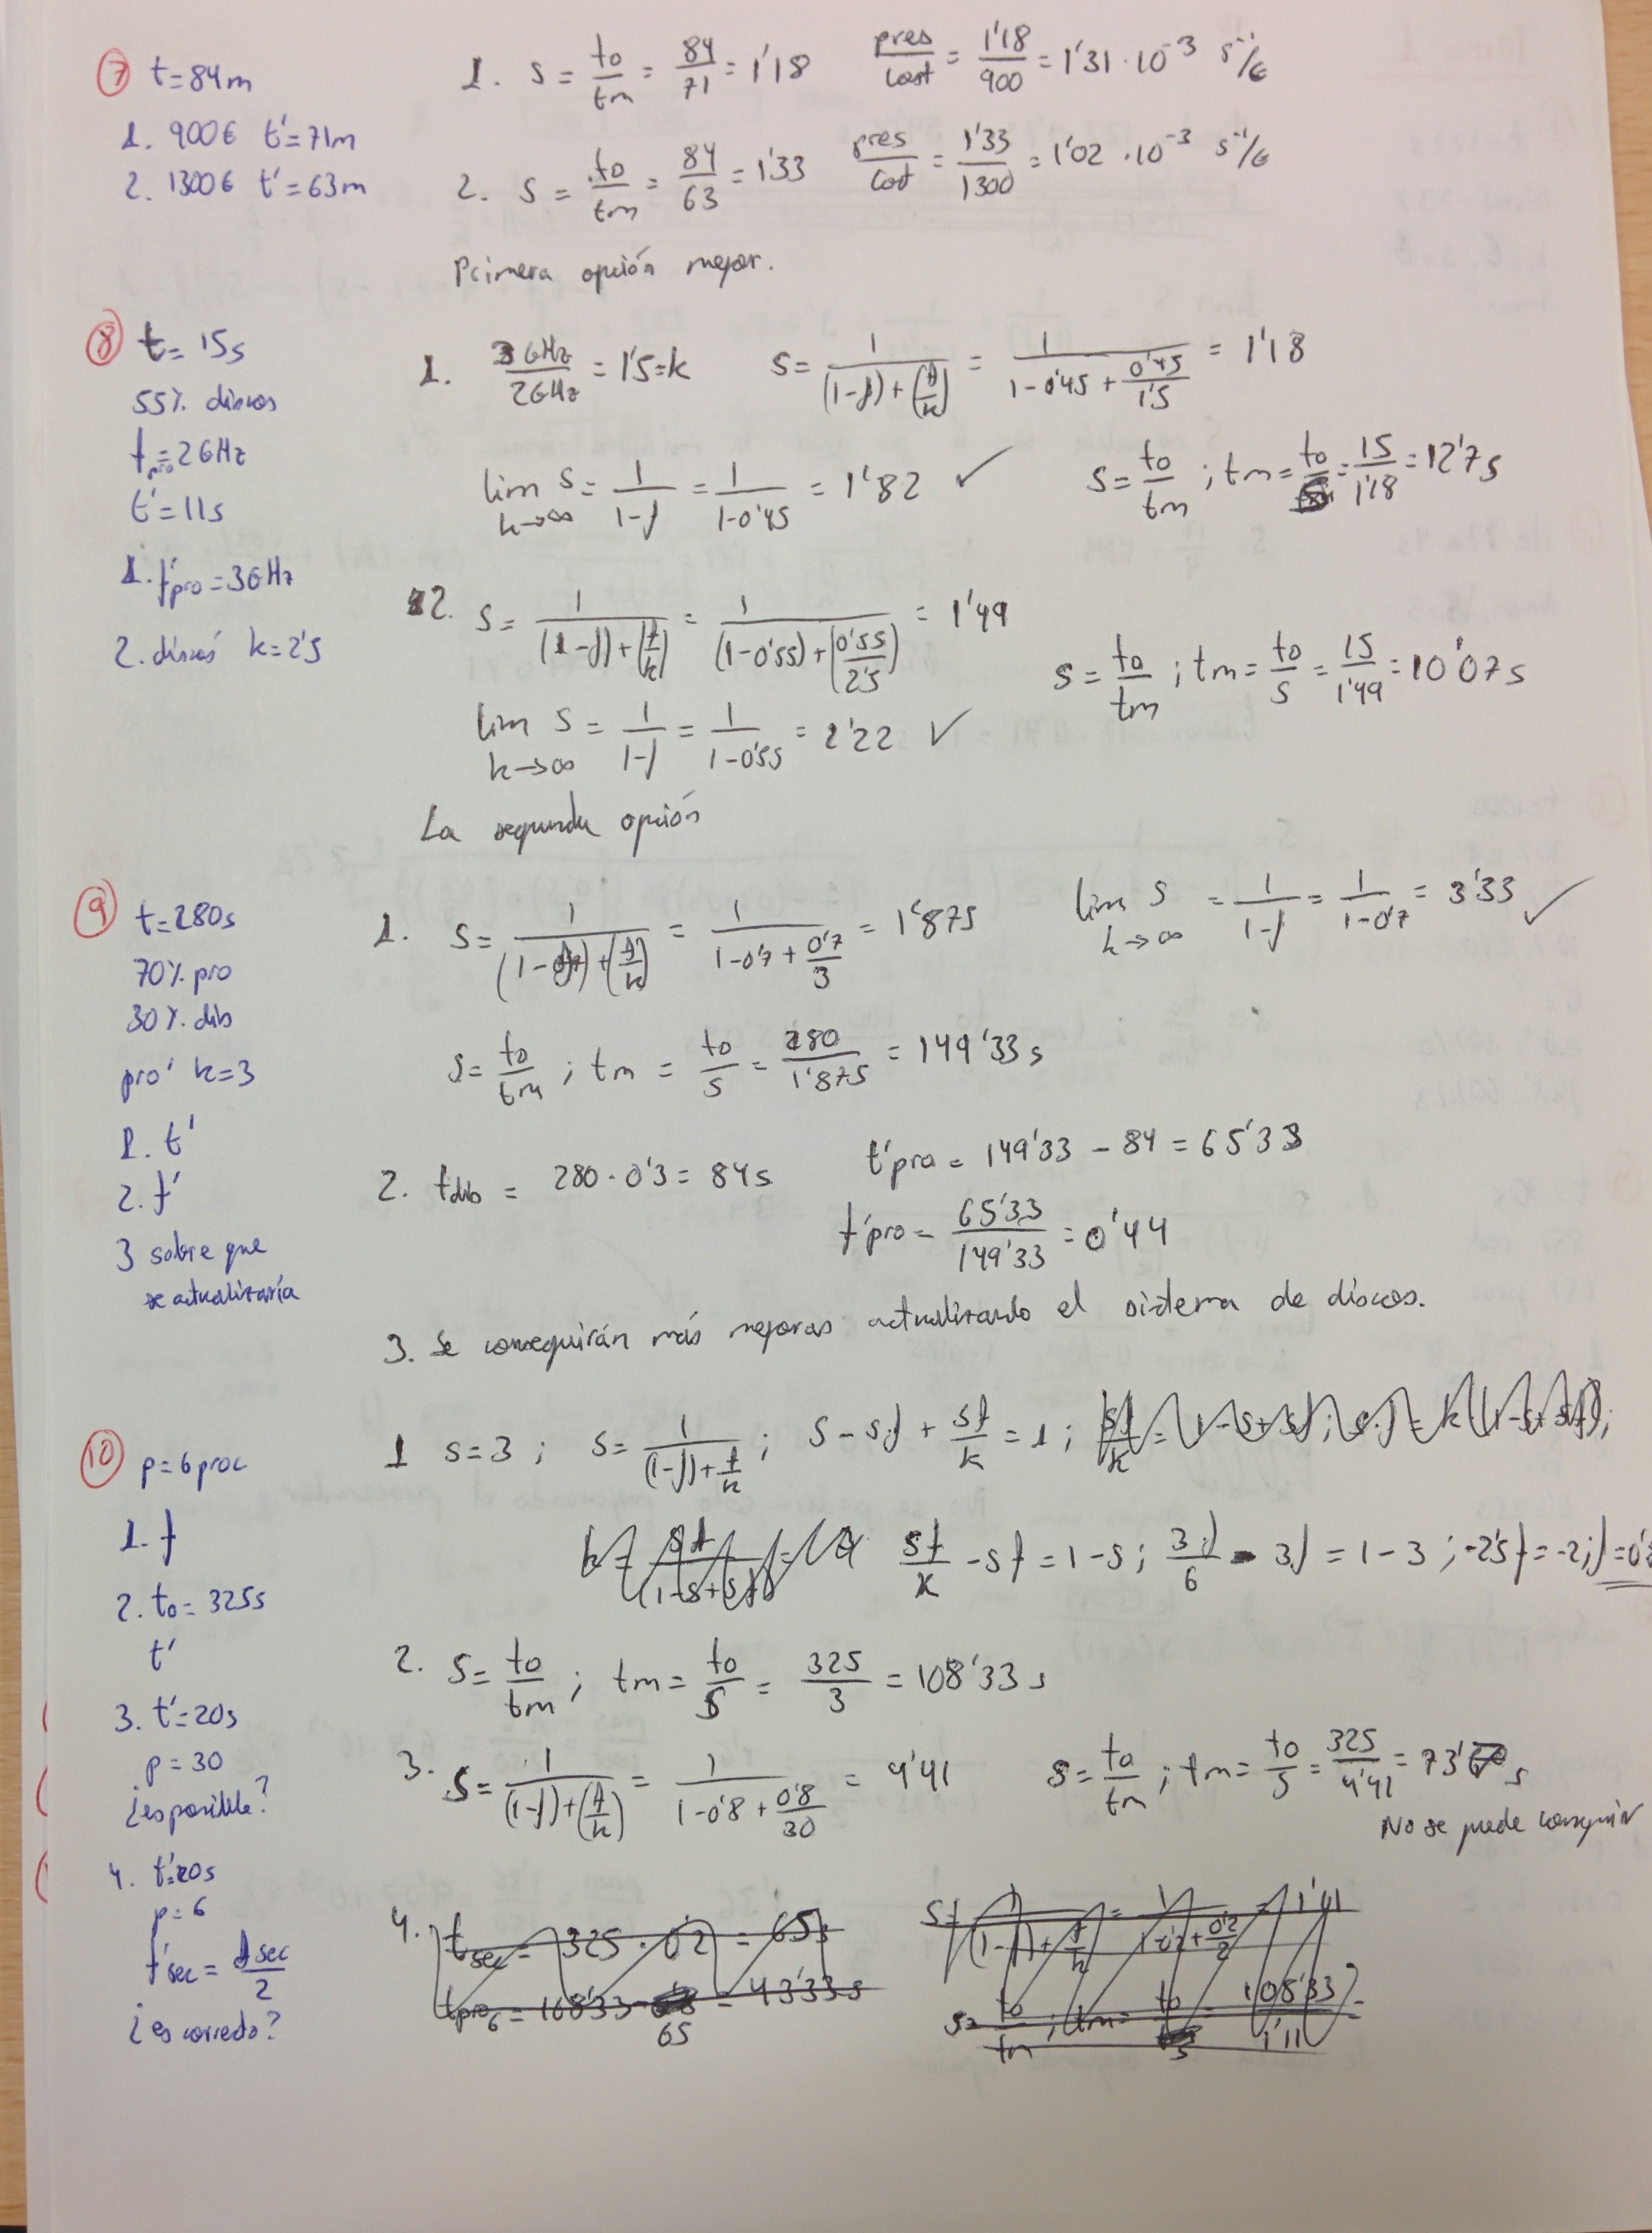 ⑦ t=84m
1. 900€ t'=71m
2. 1300€ t'=63m
1. s = to/tm = 84/71 = 1'18 pres/cost = 1'18/900 = 1'31·10⁻³ s⁻¹/€
2. s = to/tm = 84/63 = 1'33 pres/cost = 1'33/1300 = 1'02·10⁻³ s⁻¹/€
Primera opción mejor.
⑧ t= 15s
55% discos
f pro=2GHz
t'=11s
1. f'pro=3GHz
2. discos' k=2'5
1. 3GHz/2GHz = 1'5=k s= 1/((1-f)+(f/k)) = 1/(1-0'45+0'45/1'5) = 1'18
lim k→∞ s = 1/(1-f) = 1/(1-0'45) = 1'82 ✓ s= to/tm ; tm= to/s = 15/1'18 = 12'7s
2. s= 1/((1-f)+(f/k)) = 1/((1-0'55)+(0'55/2'5)) = 1'49
s = to/tm ; tm= to/s = 15/1'49 = 10'07s
lim k→∞ s = 1/(1-f) = 1/(1-0'55) = 2'22 ✓
La segunda opción
⑨ t=280s
70% pro
30% dib
pro' k=3
1. t'
2. f'
3 sobre que
se actualizaría
1. s= 1/((1-f)+(f/k)) = 1/(1-0'7+0'7/3) = 1'875 lim k→∞ s = 1/(1-f) = 1/(1-0'7) = 3'33 ✓
s= to/tm ; tm = to/s = 280/1'875 = 149'33s
2. tdib = 280·0'3= 84s t'pro = 149'33 - 84 = 65'33
f'pro = 65'33/149'33 = 0'44
3. Se conseguirán más mejoras actualizando el sistema de discos.
⑩ p=6 proc
1. f
2. to= 325s
t'
3. t'=20s
p=30
¿es posible?
4. t'=20s
p=6
f'sec = fsec/2
¿es correcto?
1 s=3 ; s= 1/((1-f)+f/k) ; s-sf+sf/k=1 ; sf/k = (1-s+sf); s·f = k(1-s+sf);
k = sf/(1-s+sf) sf/k -sf=1-s; 3f/6 - 3f=1-3 ;-2'5f=-2;f=0'8
2. s= to/tm ; tm= to/s = 325/3 = 108'33 s
3. s= 1/((1-f)+(f/k)) = 1/(1-0'8+0'8/30) = 4'41 s= to/tm ; tm= to/s = 325/4'41 = 73' s
No se puede conseguir
4. tsec = 325·0'2 = 65s s= 1/((1-f)+f/k) = 1/(1-0'2+0'2/2) = 1'11
tpro6 = 108'33 - 65 = 43'33s s= to/tm ; tm= to/s = 108'33/1'11 =